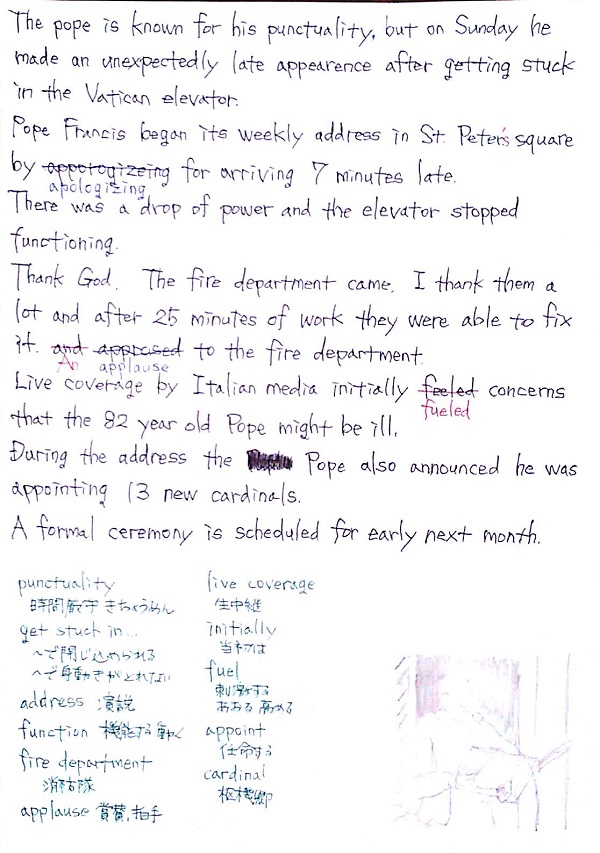 The pope is known for his punctuality, but on Sunday he
made an unexpectedly late appearence after getting stuck
in the Vatican elevator.
Pope Francis began its weekly address in St. Peter's square
by appotogizeing for arriving 7 minutes late.
apologizing
There was a drop of power and the elevator stopped
functioning.
Thank God. The fire department came. I thank them a
lot and after 25 minutes of work they were able to fix
it. and approsed to the fire department.
An applause
Live coverage by Italian media initially feeled concerns
fueled
that the 82 year old Pope might be ill.
During the address the Pope also announced he was
appointing 13 new cardinals.
A formal ceremony is scheduled for early next month.
punctuality
時間厳守 きちょうめん
get stuck in...
〜で閉じ込められる
〜で身動きがとれない
address 演説
function 機能する 動く
fire department
消防隊
applause 賞賛, 拍手
live coverage
生中継
initially
当初は
fuel
刺激する
あおる 高める
appoint
任命する
cardinal
枢機卿